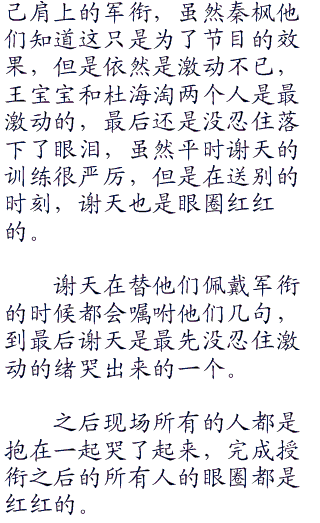 己肩上的军衔，虽然秦枫他
们知道这只是为了节目的效
果，但是依然是激动不已，
王宝宝和杜海淘两个人是最
激动的，最后还是没忍住落
下了眼泪，虽然平时谢天的
训练很严厉，但是在送别的
时刻，谢天也是眼圈红红
的。
谢天在替他们佩戴军衔
的时候都会嘱咐他们几句，
到最后谢天是最先没忍住激
动的绪哭出来的一个。
之后现场所有的人都是
抱在一起哭了起来，完成授
衔之后的所有人的眼圈都是
红红的。